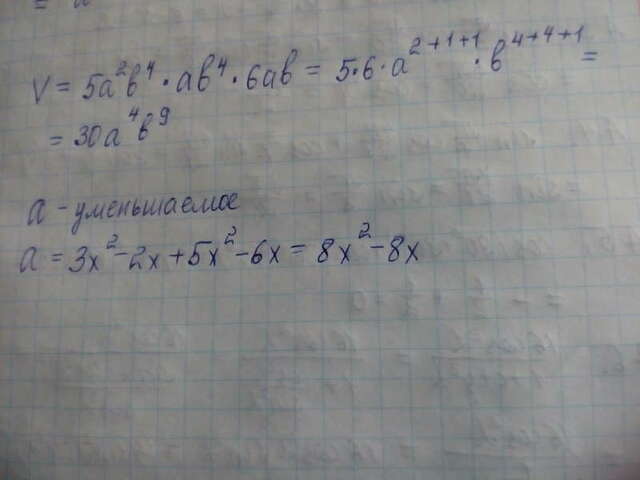 V = 5a²b⁴ · ab⁴ · 6ab = 5·6·a²⁺¹⁺¹ · b⁴⁺⁴⁺¹ =
= 30a⁴b⁹
a - уменьшаемое
a = 3x² - 2x + 5x² - 6x = 8x² - 8x